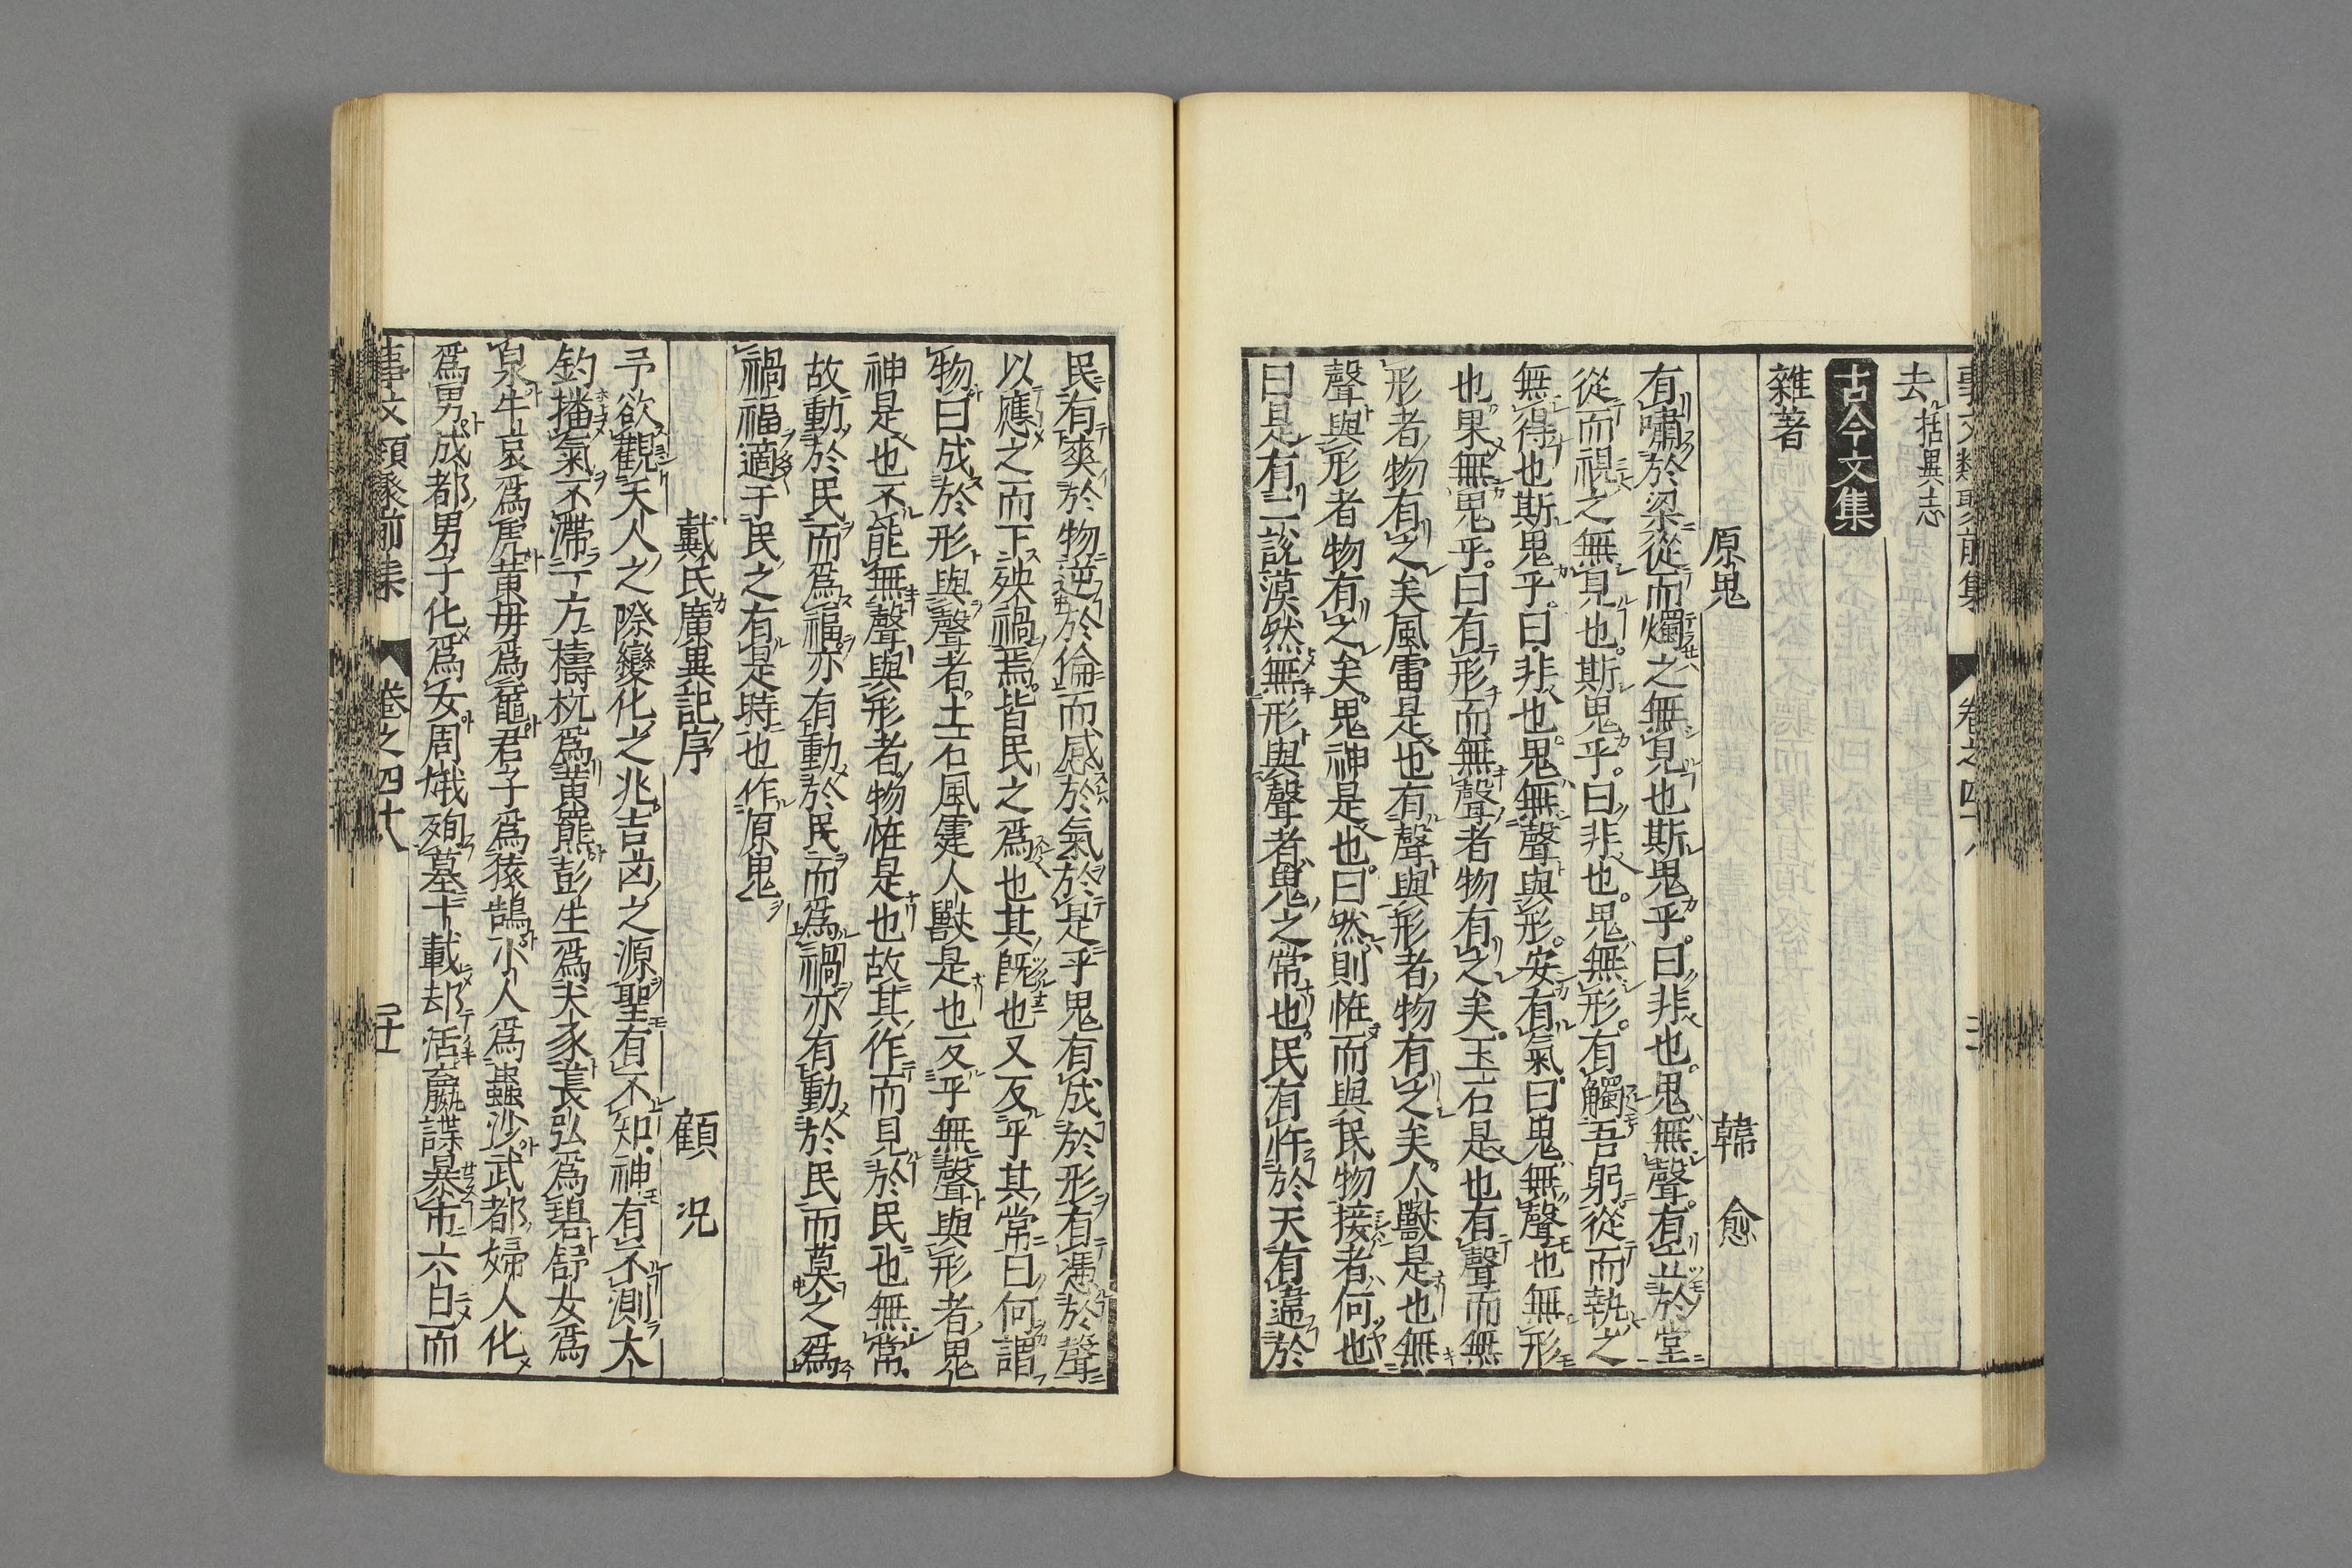 去 括異志
古今文集
雜著
原鬼 韓愈
有嘯於梁從而燭之無見也斯鬼乎曰非也鬼無聲有立於堂
從而視之無見也斯鬼乎曰非也鬼無形有觸吾躬從而執之
無得也斯鬼乎曰非也鬼無聲與形安有氣曰鬼無聲也無形
也果無鬼乎曰有形而無聲者物有之矣玉石是也有聲而無
形者物有之矣風雷是也有聲與形者物有之矣人獸是也無
聲與形者物有之矣鬼神是也曰然則恠而與民物接者何也
曰是有二說漠然無形與聲者鬼之常也民有忤於天有違於
民有爽於物逆於倫而感於氣於是乎鬼有成於形有憑於聲
以應之而下殃禍焉皆民之爲也其旣也又反乎其常曰何謂
物曰成於形與聲者土石風霆人獸是也反乎無聲與形者鬼
神是也不能無聲與形者物恠是也故其作而見於民也無常
故動於民而爲福亦有動於民而爲禍亦有動於民而莫之爲
禍福適于民之有是時也作原鬼
戴氏廣異記序 顧況
予欲觀天人之際變化之兆吉凶之源聖有不知神有不測大
釣播氣不滯一方檮杌爲黃熊彭生爲犬豕萇弘爲碧舒女爲
泉牛哀爲虎黃母爲黿君子爲猿鶴小人爲蟲沙武都婦人化
爲男成都男子化爲女周娥殉墓十載却活嬴諜暴市六日而
事文類聚前集 卷之四十八 二十一